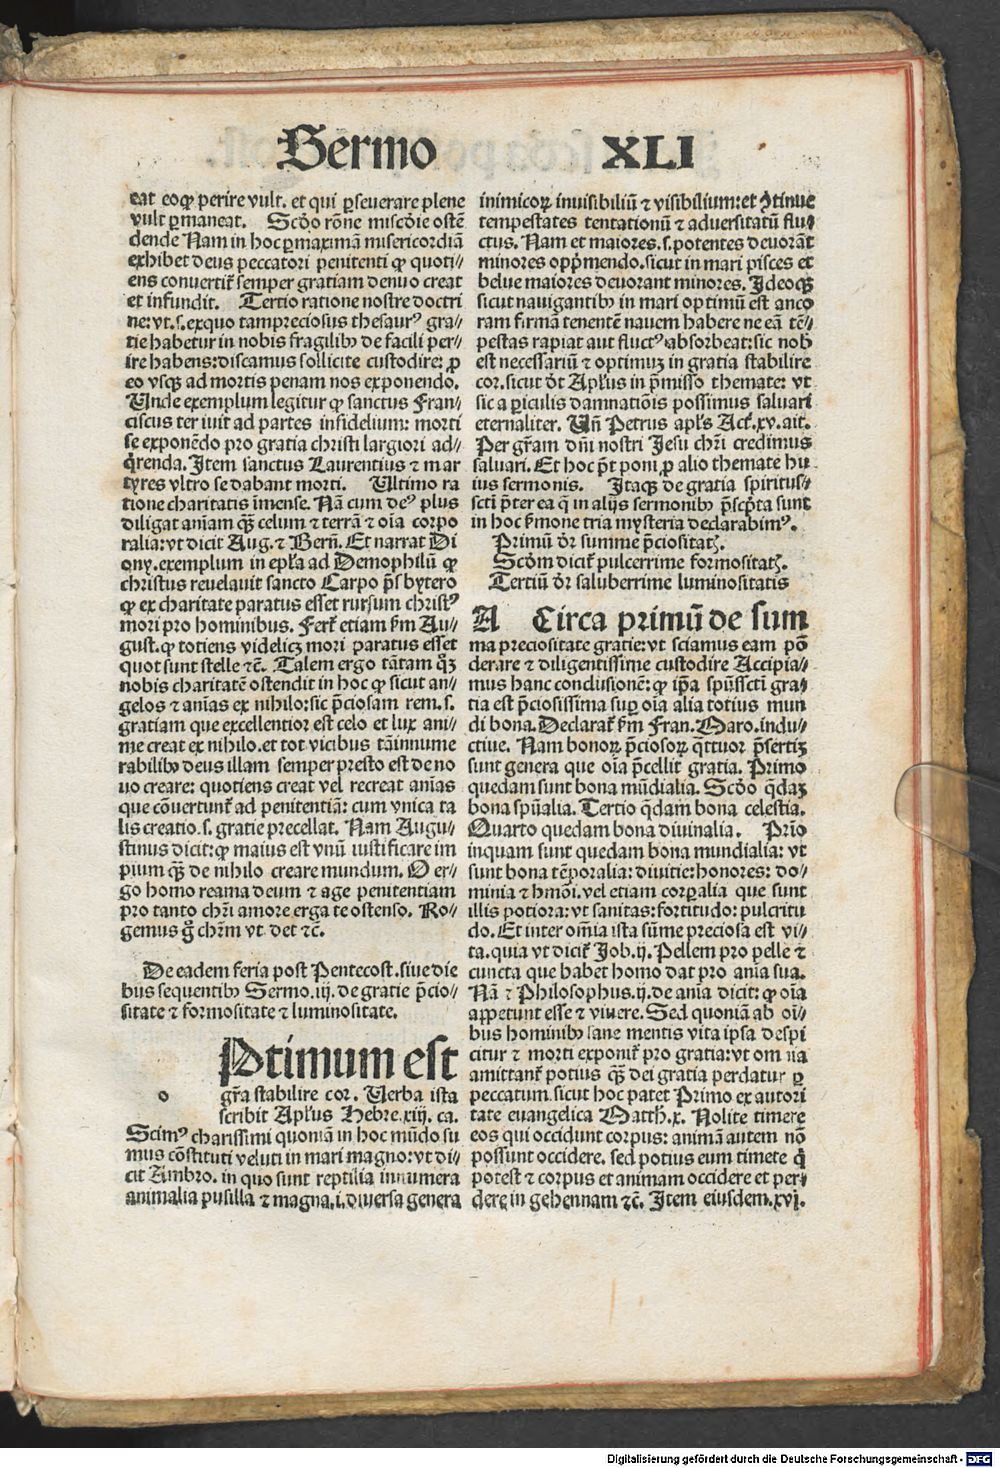 Sermo XLI
eat eoqꝫ perire vult. et qui ꝑseuerare plene
vult ꝑmaneat. Scḋo rōne miscḋie ostē
dende Nam in hoc ꝑmaximā misericordiā
exhibet deus peccatori penitenti ꝙ quoti⸗
ens conuertit̄ semper gratiam denuo creat
et infundit. Tertio ratione nostre doctri
ne: vt .s. exquo tampreciosus thesaurꝰ gra⸗
tie habetur in nobis fragilibꝫ de facili per⸗
ire habens: discamus sollicite custodire: ꝓ
eo vsqꝫ ad mortis penam nos exponendo.
Unde exemplum legitur ꝙ sanctus Fran⸗
ciscus ter iuit ad partes infidelium: morti
se exponēdo pro gratia christi largiori ad⸗
q̇renda. Item sanctus Laurentius ⁊ mar
tyres vltro se dabant morti. Ultimo ra
tione charitatis īmense. Nā cum deꝰ plus
diligat aniam qꝫ̄ celum ⁊ terrā ⁊ oīa corpo
ralia: vt dicit Aug. ⁊ Bern̄. Et narrat Di
ony. exemplum in epl̄a ad Demophilū ꝙ
christus reuelauit sancto Carpo p̄sbytero
ꝙ ex charitate paratus esset rursum christꝰ
mori pro hominibus. Fert̄ etiam ẜm Au⸗
gust. ꝙ totiens videlicꝫ mori paratus esset
quot sunt stelle ⁊c̄. Talem ergo tātam q̊ꝫ
nobis charitatē ostendit in hoc ꝙ sicut an⸗
gelos ⁊ anīas ex nihilo: sic p̄ciosam rem .s.
gratiam que excellentior est celo et lux ani⸗
me creat ex nihilo. et tot vicibus tā innume
rabilibꝫ deus illam semper presto est de no
uo creare: quotiens creat vel recreat anīas
que cōuertunt̄ ad penitentiā: cum vnica ta
lis creatio .s. gratie precellat. Nam Augu⸗
stinus dicit: ꝙ maius est vnū iustificare im
pium qꝫ̄ de nihilo creare mundum. O er⸗
go homo reama deum ⁊ age penitentiam
pro tanto chr̄i amore erga te ostenso. Ro⸗
gemus g̊ chr̄m vt det ⁊c̄.
De eadem feria post Pentecost. siue die
bus sequentibꝫ Sermo .iij. de gratie p̄cio⸗
sitate ⁊ formositate ⁊ luminositate.
Optimum est
gr̄a stabilire cor. Verba ista
scribit Apl̄us Hebre. xiij. ca.
Scimꝰ charissimi quoniā in hoc mūdo su
mus cōstituti veluti in mari magno: vt di⸗
cit Ambro. in quo sunt reptilia innumera
animalia pusilla ⁊ magna .i. diuersa genera
inimicoꝝ inuisibiliū ⁊ visibilium: et ꝯtinue
tempestates tentationū ⁊ aduersitatū flu⸗
ctus. Nam et maiores .s. potentes deuorāt
minores opp̄mendo. sicut in mari pisces et
belue maiores deuorant minores. Ideoqꝫ
sicut nauigantibꝫ in mari optimū est anco
ram firmā tenentē nauem habere ne eā tē⸗
pestas rapiat aut fluctꝰ absorbeat: sic nob̄
est necessariū ⁊ optimuꝫ in gratia stabilire
cor. sicut dr̄t Apl̄us in p̄misso themate: vt
sic a ꝑiculis damnatiōis possimus saluari
eternaliter. Un̄ Petrus apl̄s Act. xv. ait.
Per gr̄am dn̄i nostri Jesu chr̄i credimus
saluari. Et hoc p̄t poni ꝓ alio themate hu
ius sermonis. Itaqꝫ de gratia spiritus⸗
scti p̄ter ea q̄ in alijs sermonibꝫ p̄scp̄ta sunt
in hoc ẜmone tria mysteria declarabimꝰ.
Primū dr̄ summe p̄ciositatꝭ.
Scḋm dicit̄ pulcerrime formositatꝭ.
Tertiū dr̄ saluberrime luminositatis
A Circa primū de sum
ma preciositate gratie: vt sciamus eam pō
derare ⁊ diligentissime custodire Accipia⸗
mus hanc conclusionē: ꝙ ip̄a spūssctī gra⸗
tia est p̄ciosissima suꝑ oīa alia totius mun
di bona. Declarat̄ ẜm Fran. Maro. indu⸗
ctiue. Nam bonoꝝ p̄ciosoꝝ q̈ttuor p̄sertiꝫ
sunt genera que oīa p̄cellit gratia. Primo
quedam sunt bona mūdialia. Scḋo q̄daꝫ
bona spūalia. Tertio q̄dam bona celestia.
Quarto quedam bona diuinalia. Prīo
inquam sunt quedam bona mundialia: vt
sunt bona tēporalia: diuitie: honores: do⸗
minia ⁊ hmōi. vel etiam corꝑalia que sunt
illis potiora: vt sanitas: fortitudo: pulcritu
do. Et inter omīa ista sūme preciosa est vi⸗
ta. quia vt dicit̄ Job. ij. Pellem pro pelle ⁊
cuncta que habet homo dat pro anīa sua.
Nā ⁊ Philosophus .ij. de anīa dicit: ꝙ oīa
appetunt esse ⁊ viuere. Sed quoniā ab oī⸗
bus hominibꝫ sane mentis vita ipsa despi
citur ⁊ morti exponit̄ pro gratia: vt omnia
amittant̄ potius qꝫ̄ dei gratia perdatur ꝑ
peccatum. sicut hoc patet Primo ex autori
tate euangelica Matth. x. Nolite timere
eos qui occidunt corpus: animā autem nō
possunt occidere. sed potius eum timete q̇
potest ⁊ corpus et animam occidere et per⸗
dere in gehennam ⁊c̄. Item eiusdem. xvj.
Digitalisierung gefördert durch die Deutsche Forschungsgemeinschaft - DFG